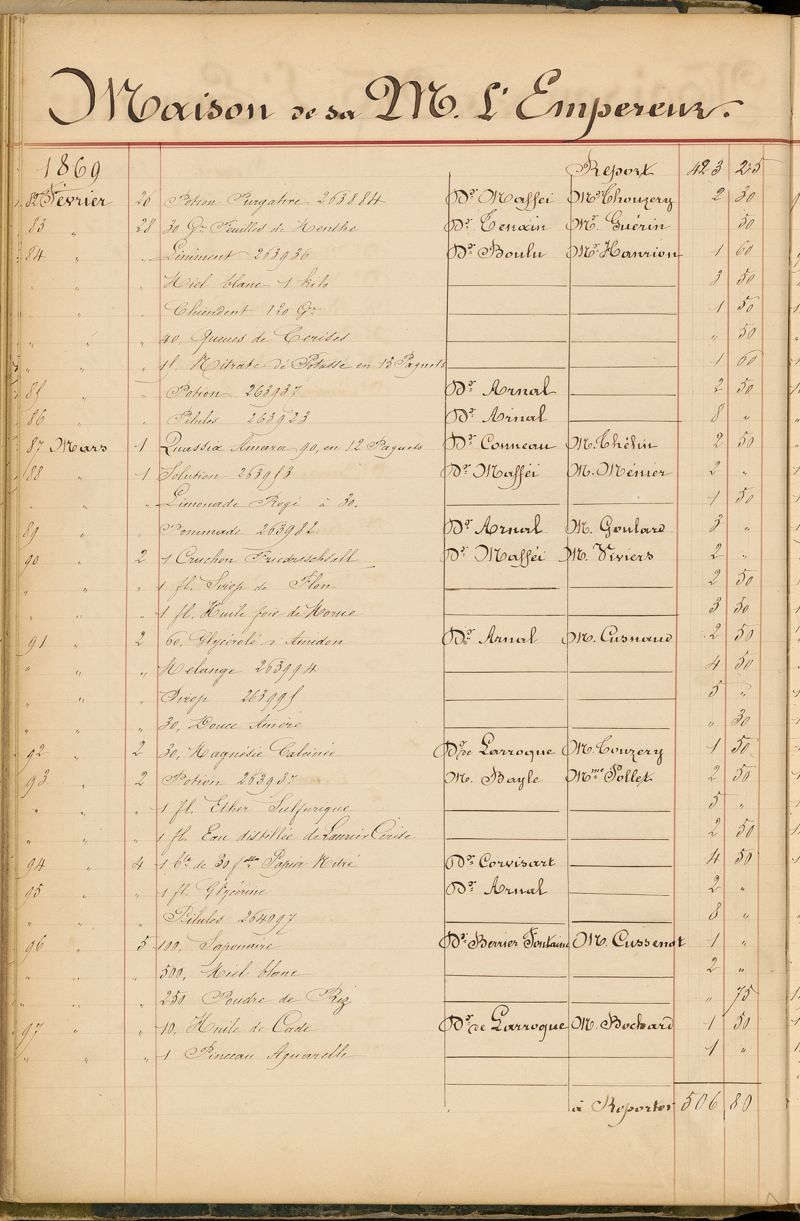 Maison de sa M. L'Empereur.
1869 Report 423 25
82 Février 26 Potion Purgative 263884 Dr Maffei Mr Thouzery 2 30
83 " 28 30 Gr Feuilles de Menthe Dr Tenain Mr Guérin 50
84 " " Liniment 263936 Dr Boulu Mr Hanrion 1 60
" " " Miel blanc 1 kilo 3 50
" " " Chiendent 120 Gr 1 50
" " " 40, Queues de Cerises " 50
" " " Nitrate de Potasse en 15 Paquets 1 60
85 " " Potion 263937 Dr Arnal 2 50
86 " " Pilules 263923 Dr Arnal 8 "
87 Mars 1 Quassia Amara 90, en 12 Paquets Dr Conneau M. Thélin 2 50
88 " 1 Solution 263953 Dr Maffei M. Ménier 2 "
" " " Limonade Rogé à 30. 1 50
89 " " Pommade 263982 Dr Arnal M. Goulard 3 "
90 " 2 1 Cruchon Friedrischsall Dr Mafféi M. Viviers 2 "
" " " 1 fl. Sirop de Flon 2 50
" " " 1 fl. Huile foie de Morue 3 50
91 " 2 60, Glycérolé d'Amidon Dr Arnal M. Cusnaud 2 50
" " " Mélange 263994 4 50
" " " Sirop 263995 5 "
" " " 30, Douce Amère " 30
92 " 2 30, Magnésie Calcinée Dr de Larroque M. Touzery 1 50
93 " 2 Potion 263937 M. Bayle Mme Pollet 2 50
" " " 1 fl. Ether Sulfurique 5 "
" " " 1 fl. Eau distillée de Laurier Cerise 2 50
94 " 4 1 bte de 30 flles Papier Nitré Dr Corvisart 4 50
95 " " 1 fl. Glycérine Dr Arnal 2 "
" " " Pilules 264097 8 "
96 " 5 100, Saponaire Dr Berrier Fontaine M. Cussenot 1 "
" " " 500, Miel blanc 2 "
" " " 250 Poudre de Riz " 75
97 " " 10, Huile de Cade Dr de Larroque M. Bochard 1 50
" " " 1 Pinceau Aquarelle 1 "
à Reporter 506 80